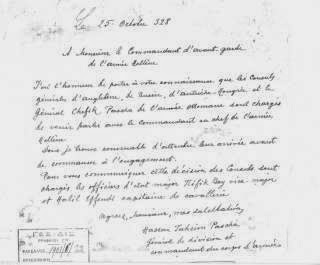 Le 25 Octobre 328
A Monsieur le Commandant d'avant-garde
de l'armée hellène
J'ai l'honneur de porter à votre connaissance que les Consuls
généraux d'Angleterre, de Russie, d'Autriche-Hongrie et le
Général Chefik Pascha de l'armée ottomane sont chargés
de venir parler avec le commandant en chef de l'armée
hellène
je trouve convenable d'attendre leur arrivée avant
de commencer à l'engagement.
Pour vous communiquer cette décision des Consuls sont
chargés les officiers d'état major Tefik Bey major
et Halil Effendi capitaine de cavallerie
Agréez, Monsieur, mes salutations
Hassan Tahssin Pascha
Général de division et
commandant du corps d'armée